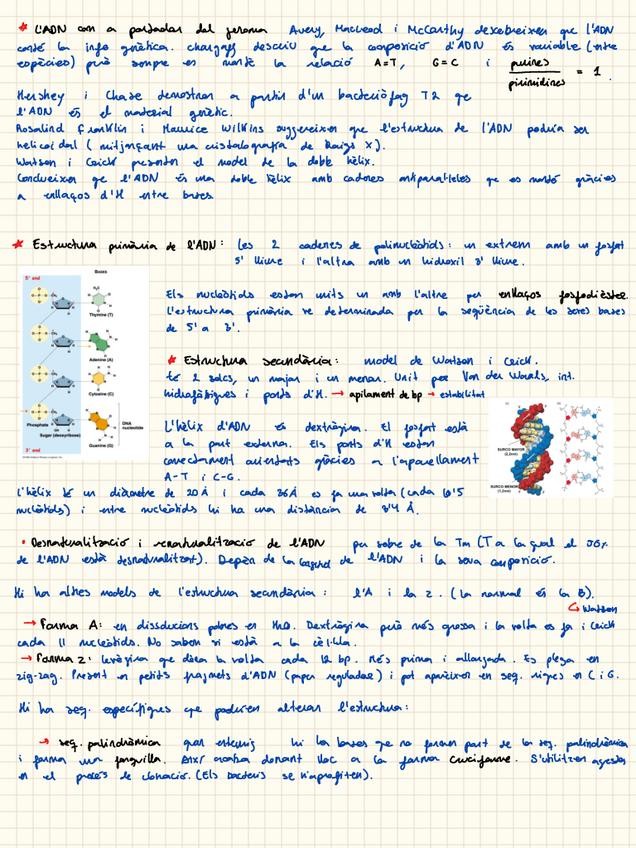 * L'ADN com a portador del genoma Avery, MacLeod i McCarthy descobreixen que l'ADN
conté la info genètica. Chargaff descriu que la composició d'ADN és variable (entre
espècies) però sempre es manté la relació A=T, G=C i purines / pirimidines = 1.
Hershey i Chase demostren a partir d'un bacteriòfag T2 que
l'ADN és el material genètic.
Rosalind Franklin i Maurice Wilkins suggereixen que l'estructura de l'ADN podria ser
helicoidal (mitjançant una cristalografia de Raigs X).
Watson i Crick presenten el model de la doble hèlix.
Conclueixen que l'ADN és una doble hèlix amb cadenes antiparal·leles que es manté gràcies
a enllaços d'H entre bases
* Estructura primària de l'ADN: Les 2 cadenes de polinucleòtids: un extrem amb un fosfat
5' lliure i l'altra amb un hidroxil 3' lliure.
Bases
5' end
Thymine (T)
Adenine (A)
Cytosine (C)
Phosphate
Sugar (deoxyribose)
DNA nucleotide
Guanine (G)
3' end
Els nucleòtids estan units un amb l'altre per enllaços fosfodièster.
L'estructura primària ve determinada per la seqüència de les seves bases
de 5' a 3'.
* Estructura secundària: model de Watson i Crick.
Té 2 solcs, un major i un menor. Unit per Van der Waals, int.
hidrofòbiques i ponts d'H. → apilament de bp → estabilitat
L'hèlix d'ADN és dextrògira. El fosfat està
a la part externa. Els ponts d'H estan
correctament orientats gràcies a l'aparellament
A-T i C-G.
SURCO MAYOR
(2,2nm)
SURCO MENOR
(1,2nm)
L'hèlix té un diàmetre de 20 Å i cada 36Å es fa una volta (cada 10'5
nucleòtids) i entre nucleòtids hi ha una distància de 3'4 Å.
• Desnaturalització i renaturalització de l'ADN per sobre de la Tm (T a la qual el 50%
de l'ADN està desnaturalitzat). Depèn de la longitud de l'ADN i la seva composició.
Hi ha altres models de l'estructura secundària: l'A i la Z. (La normal és la B).
↳ Watson
i Crick
→ Forma A: en dissolucions pobres en H2O. Dextrògira però més grossa i la volta es fa
cada 11 nucleòtids. No sabem si està a la cèl·lula.
→ Forma Z: levògira que dóna la volta cada 12 bp. Més prima i allargada. Es plega en
zig-zag. Present en petits fragments d'ADN (paper regulador) i pot aparèixer en seq. riques en C i G.
Hi ha seq. específiques que podrien alterar l'estructura:
→ seq. palindròmica quan hi ha bases que no formen part de la seq. palindròmica
i forma una forquilla. Això acaba donant lloc a la forma cruciforme. S'utilitzen aquestes
en el procés de clonació. (Els bacteris se n'aprofiten).